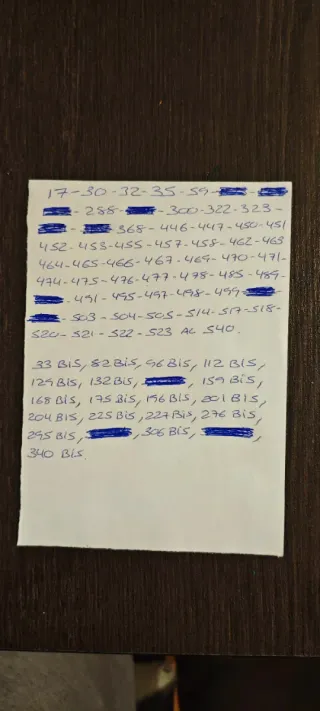 17-30-32-35-59-
- 288- -300-322-323-
- 368-446-447-450-451
452-453-455-457-458-462-463
464-465-466-467-469-470-471-
474-475-476-477-478-485-489-
- 491-495-497-498-499-
- 503-504-505-514-517-518-
520-521-522-523 AL 540.
33 BIS, 82 BIS, 96 BIS, 112 BIS,
129 BIS, 132 BIS, , 159 BIS,
168 BIS, 175 BIS, 196 BIS, 201 BIS,
204 BIS, 225 BIS, 227 BIS, 276 BIS,
295 BIS, , 306 BIS, ,
340 BIS.